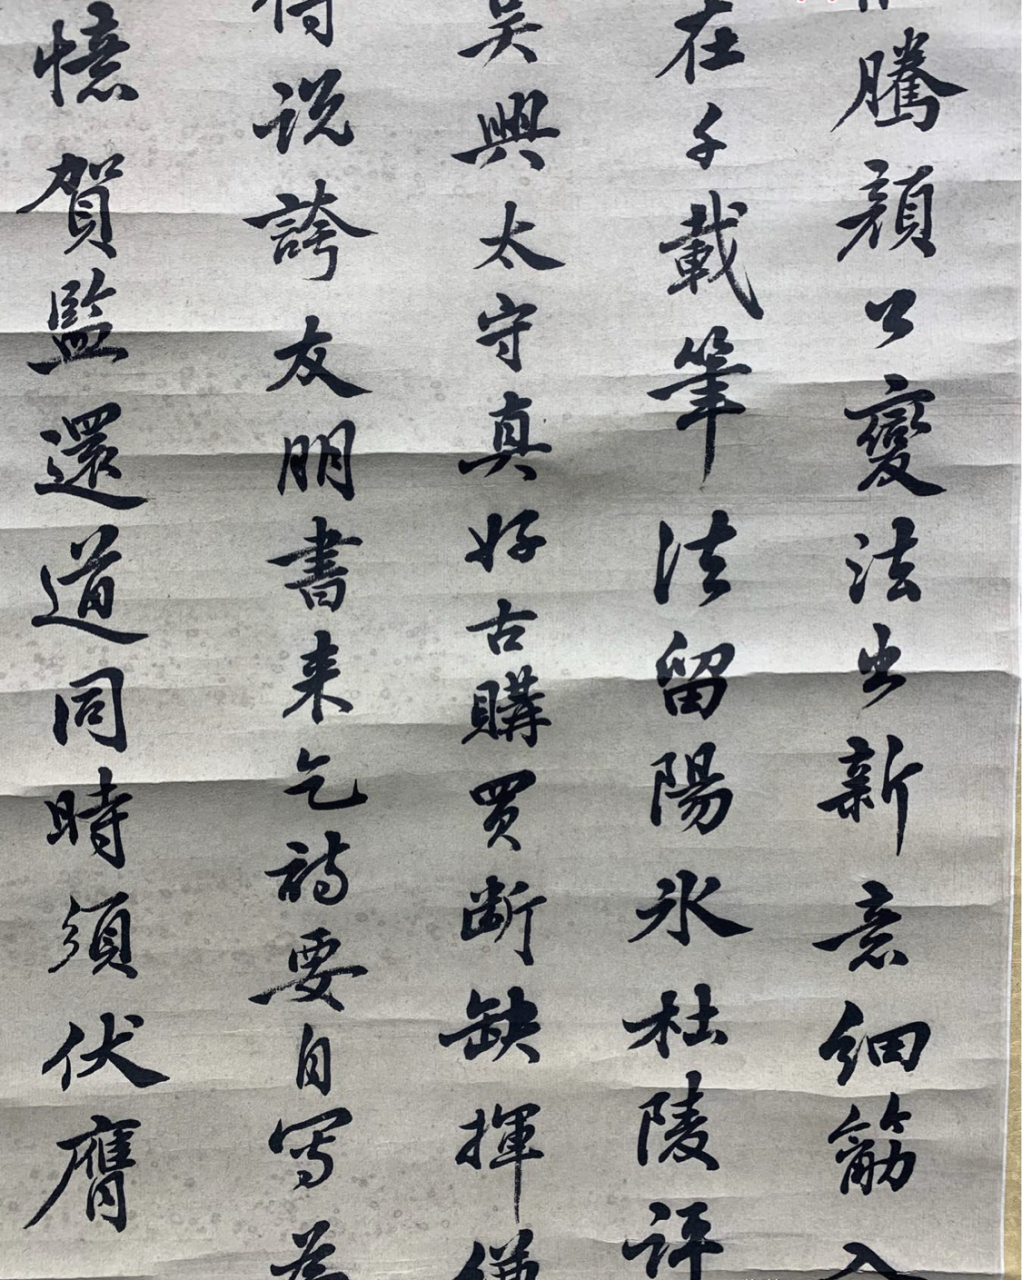 騰顔公變法出新意細筋入
在千載筆法留陽氷杜陵評
吴興太守真好古購買断缺揮
説誇友朋書来乞詩要自寫為
憶賀監還道同時須伏膺